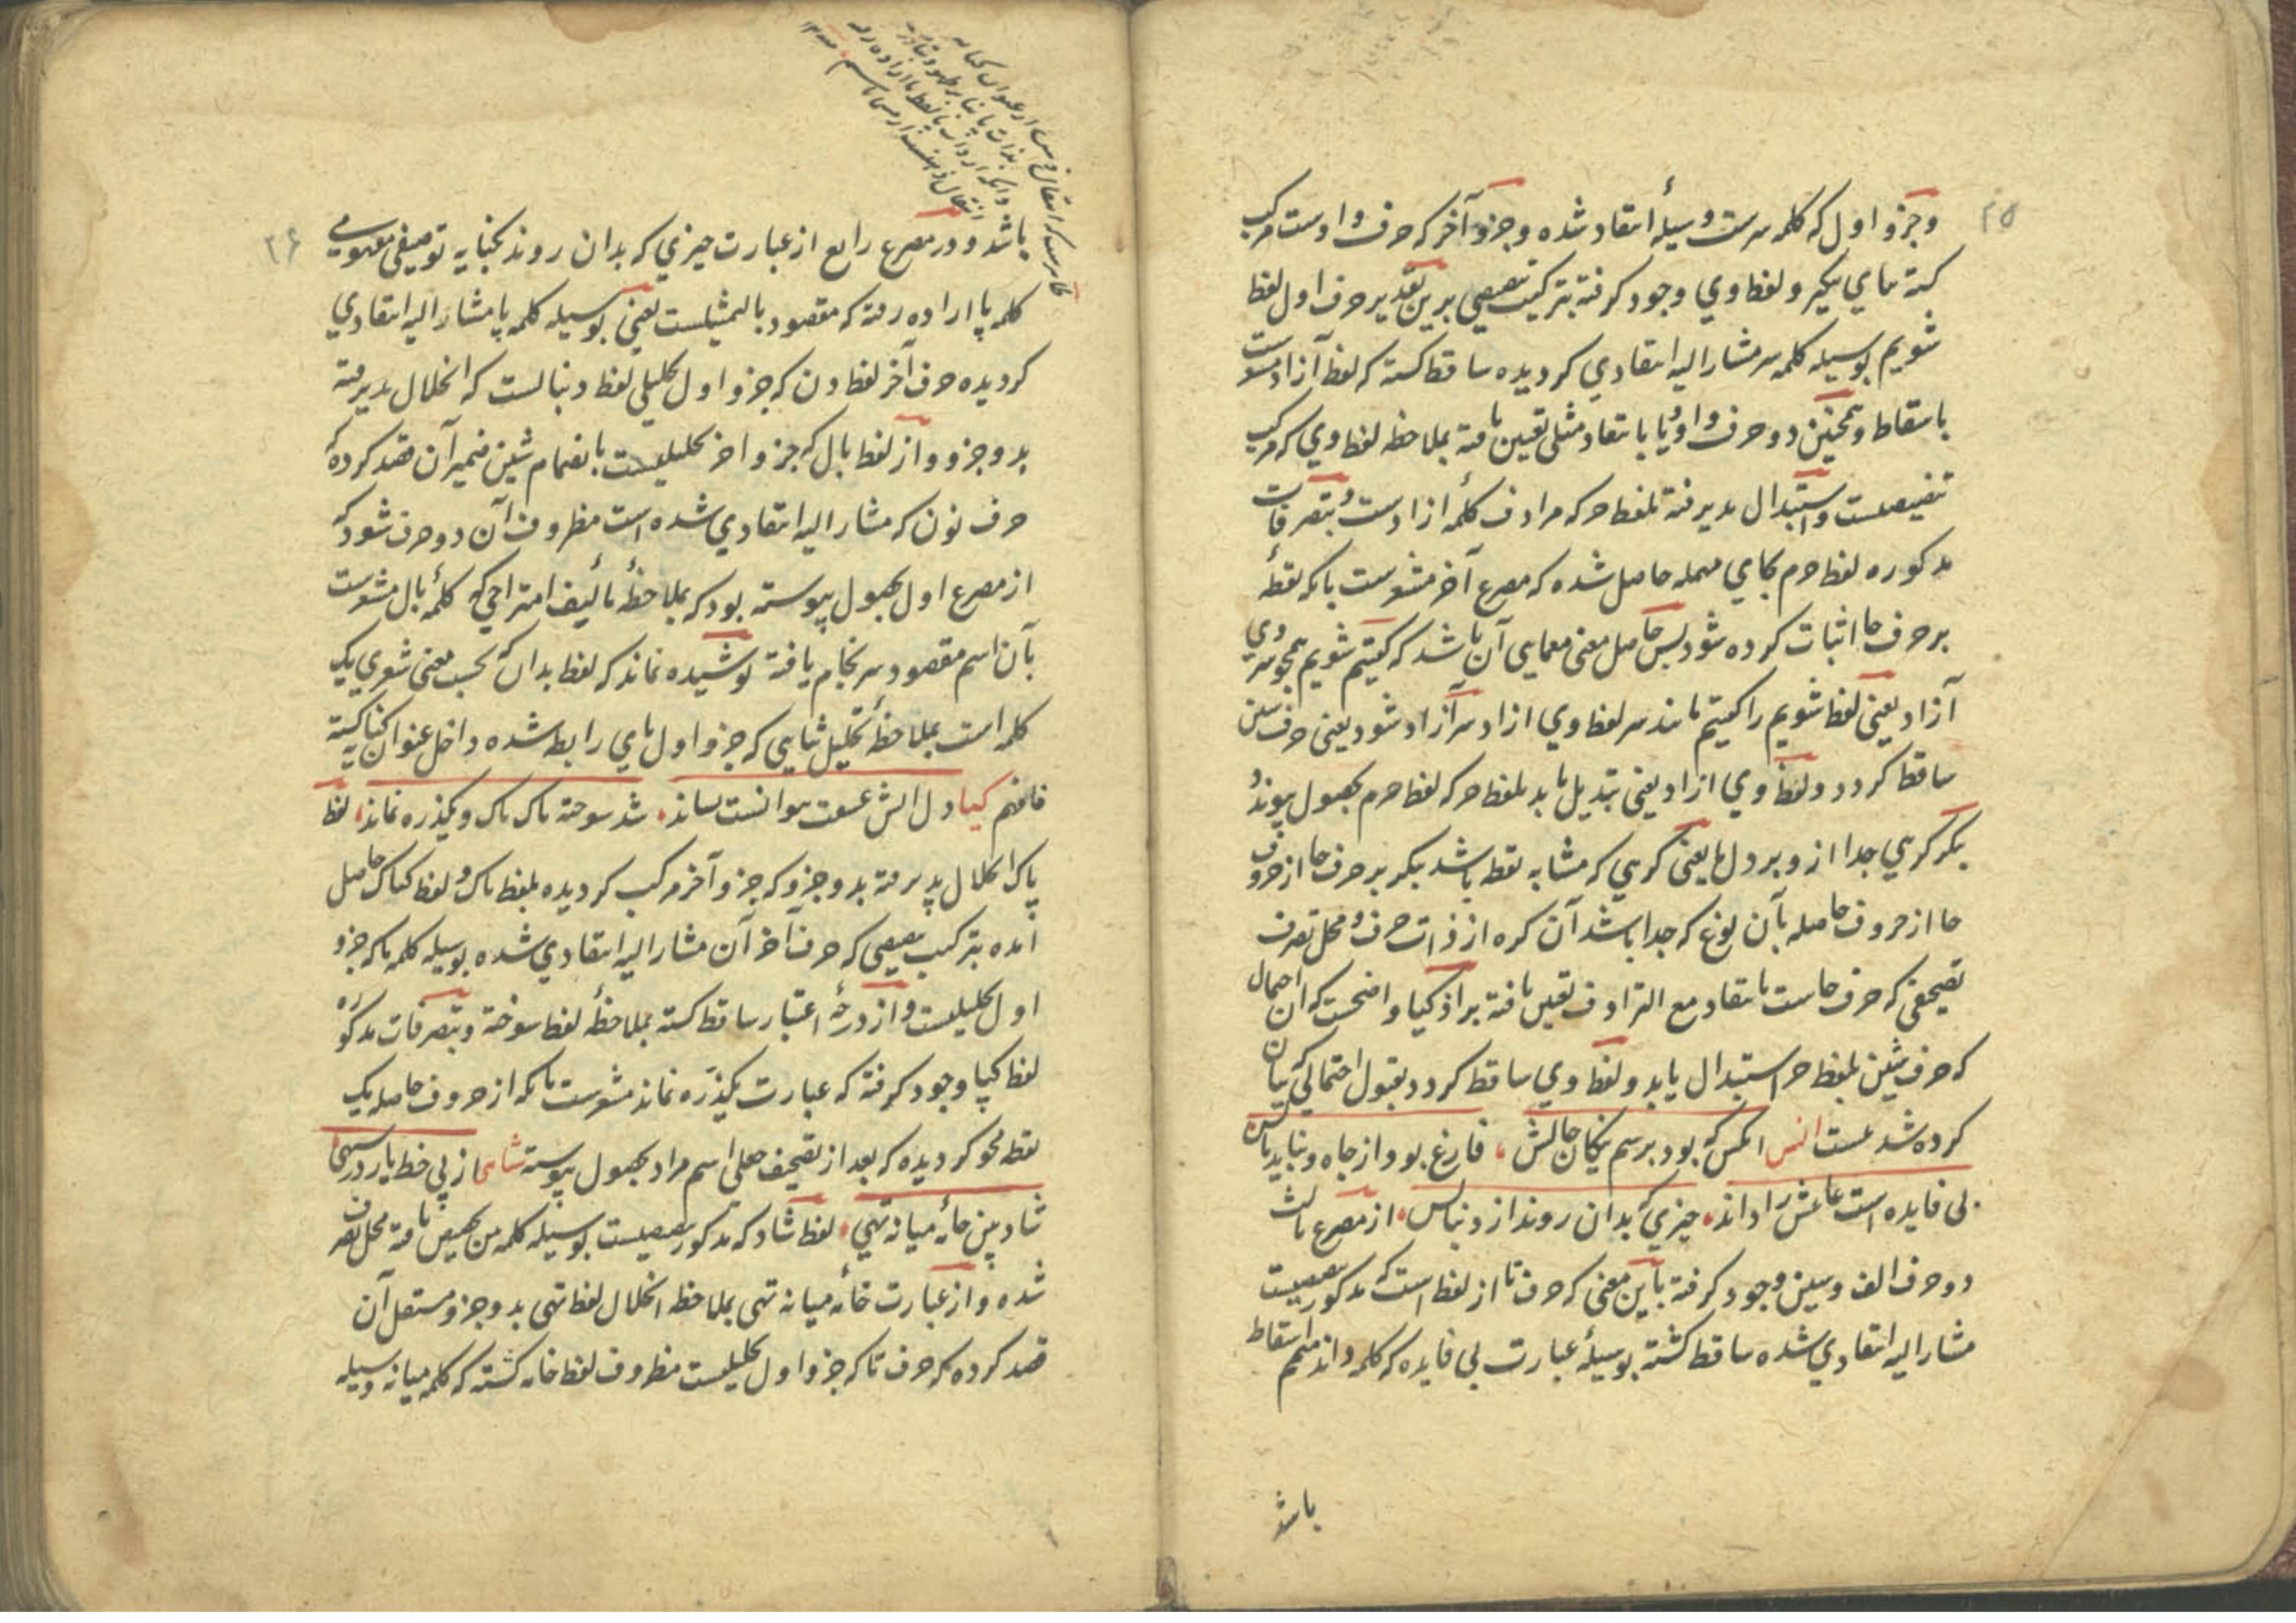 ۲۵
وجزو اول که کلمه سرست وسیلهٔ انتقاد شده وجزو آخر که حرف واوست مرکب
کشته بمای بیکیر ولفظ وي وجود کرفته بترکیب تنصیصی برین تقدیر حرف اول لفظ
شویم بوسیله کلمه سر مشارالیه انتقادي کردیده ساقط کشته که لفظ آزاد مشعرست
باسقاط وهمچنین دو حرف واو ویا بانتقاد مثلی تعیین یافته بملاحظه لفظ وي که مرکب
تنصیصست واستبدال پدیرفته بلفظ حر که مرادف کلمهٔ ازادست وبتصرفات
مدکوره لفظ حرم بحاي مهمله حاصل شده که مصرع آخر مشعرست بانکه نقطهٔ
بر حرف حا اثبات کرده شود پس حاصل معنی معمایی آن باشد که کفتیم شویم همچو سر وي
آزاد یعنی لفظ شویم را کفتیم مانند سر لفظ وي ازاد سر آزاد شود یعنی حرف شین
ساقط کردد ولفظ وي ازاد یعنی تبدیل یابد بلفظ حر که لفظ حرم بحصول پیوندد
بکر کرهي جدا ازو بر دل ما یعنی کرهي که مشابه نقطه باشد بکر بر حرف حا از حروف
حا از حروف حاصله بآن نوع که جدا باشد آن کره از ذات حرف ومحل تصرف
تصحیفی که حرف حاست بانتقاد مع الترادف تعیین یافته بر اذکیا واضحست که آن احتمال
که حرف شین بلفظ حر استبدال یابد ولفظ وي ساقط کردد بقبول احتمالی که بیان
کرده شد عست انس انکس که بود برسم نیکان حالش فارغ بود از جاه ونباید
بی فایده است عاملش را دانند چیزي که بدان روند از دنبالش از مصرع ثالث
دو حرف الف وسین وجود کرفته باین معنی که حرف تا از لفظ است که مدکور تنصیصست
مشارالیه انتقادي شده ساقط کشته بوسیلهٔ عبارت بی فایده که کلمه دانند متمم اسقاط
باشد
۲۶
باشد ودر مصرع رابع از عبارت چیزي که بدان روند بکنایه توصیفی مفهومی
کلمه پا اراده رفته که مقصود بالتمثیلست یعنی بوسیله کلمه پا مشارالیه انتقادي
کردیده حرف آخر لفظ دن که جزو اول تحلیلی لفظ دنبالست که انحلال پدیرفته
بدو جزو واز لفظ بال که جزو اخر تحلیلیست بانضمام شین ضمیر آن قصد کرده که
حرف نون که مشارالیه انتقادي شده است مظروف آن دو حرف شود که
از مصرع اول بحصول پیوسته بود که بملاحظهٔ تألیف امتزاجی که کلمهٔ بال مشعرست
بآن اسم مقصود سرنجام یافته پوشیده نماند که لفظ بدان که بحسب معنی شعري یک
کلمه است بملاحظهٔ تحلیل ثنایی که جزو اول باي رابط شده داخل عنوان کنایه کشته
فافهم کیا دل را آتش عشقت توانست نساند شد سوخته پاک پاک ویکذره نماند لفظ
پاک انحلال پدیرفته بدو جزو که جزو آخر مرکب کردیده بلفظ پاک ولفظ کپاک حاصل
آمده بترکیب تنصیصی که حرف آخر آن مشارالیه انتقادي شده بوسیله کلمه پا که جزو
اول تحلیلیست واز درجهٔ اعتبار ساقط کشته بملاحظهٔ لفظ سوخته وبتصرفات مدکوره
لفظ کپا وجود کرفته که عبارت یکذره نماند مشعرست بانکه از حروف حاصله یک
نقطه محو کردیده که بعد از تصحیف جعلی اسم مراد بحصول پیوسته شاهی از پی خط یار در سهی
شاد ببین خانهٔ میانه تهي لفظ شاد که مدکور تنصیصیست بوسیله کلمه من تخصیص یافته محل تصرف
شده واز عبارت خانه میانه تهی بملاحظه انحلال لفظ تهی بدو جزو مستقل آن
قصد کرده که حرف تا که جزو اول تحلیلیست مظروف لفظ خانه کشته که کلمه میانه وسیله